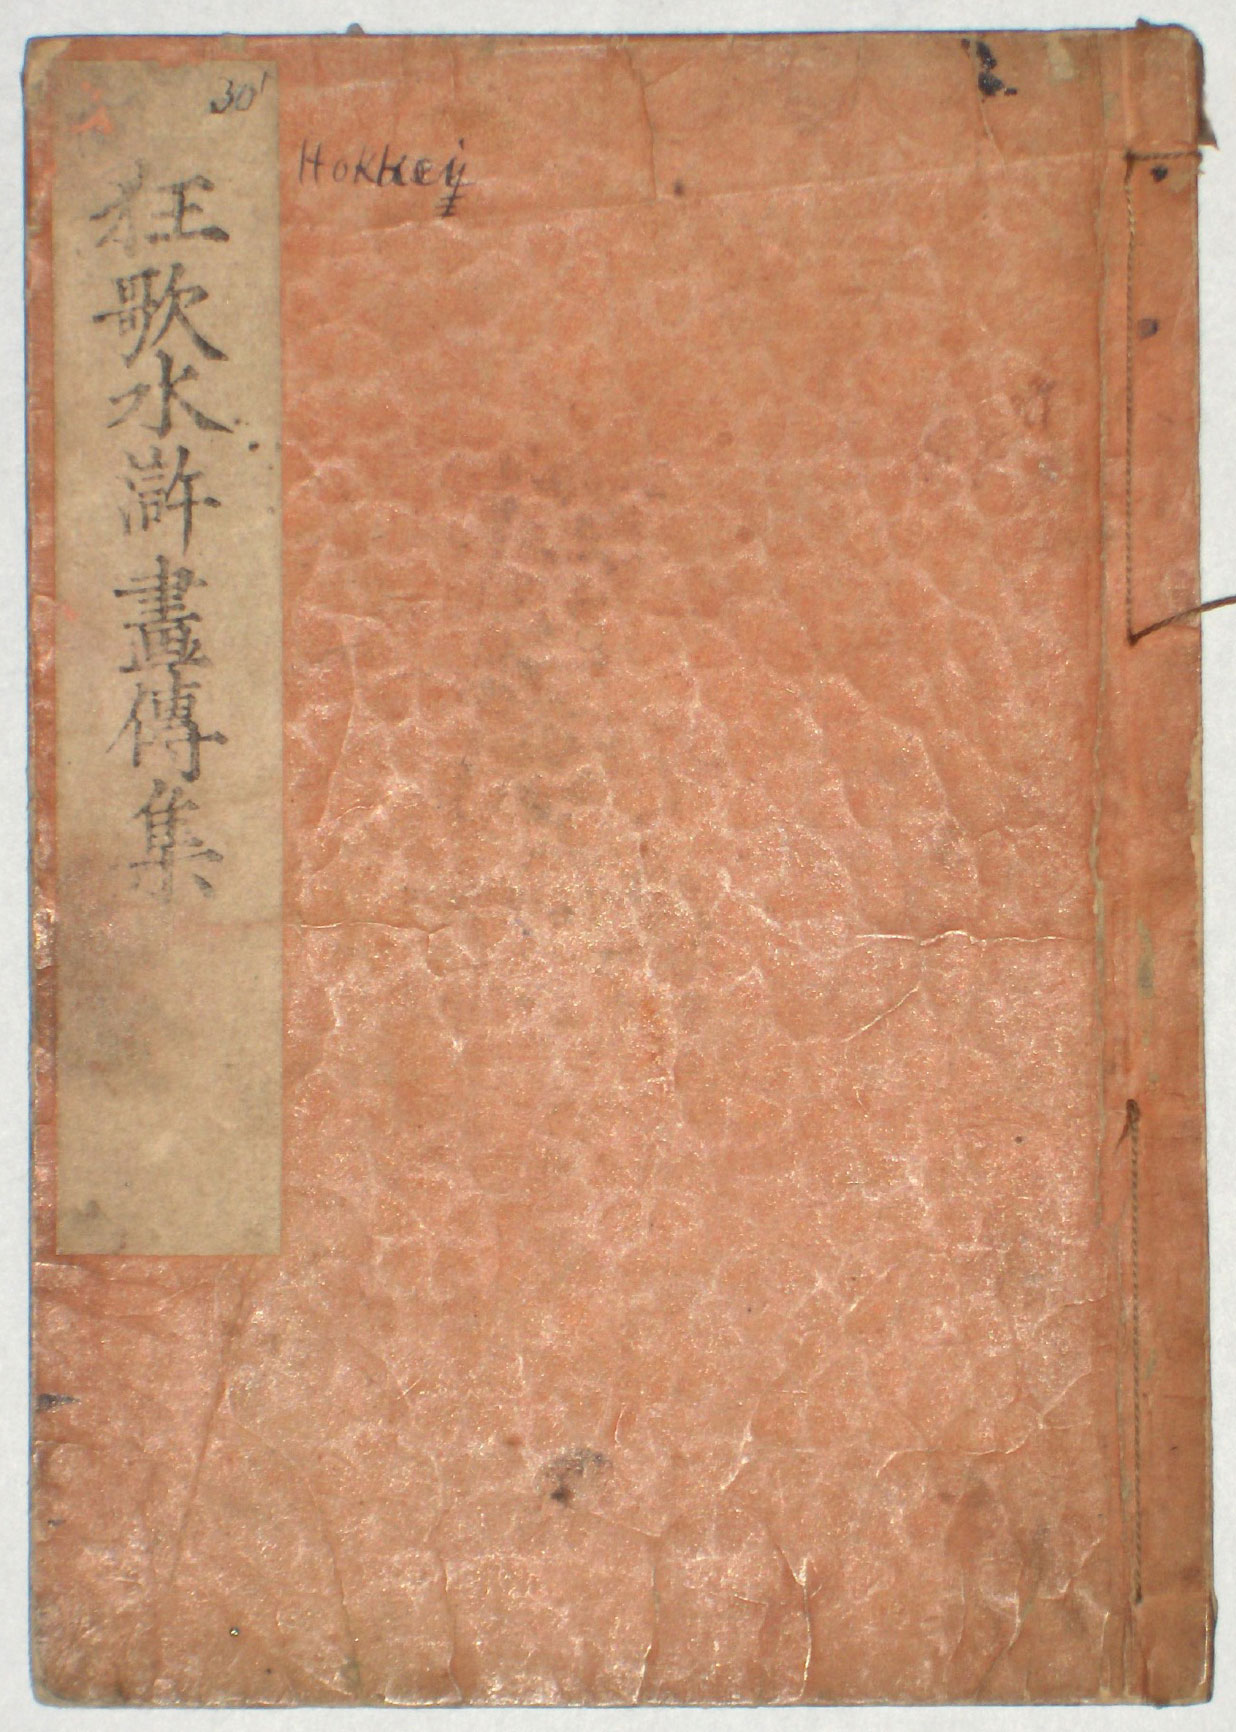 30'
Hokkei
狂歌水滸畫傳集